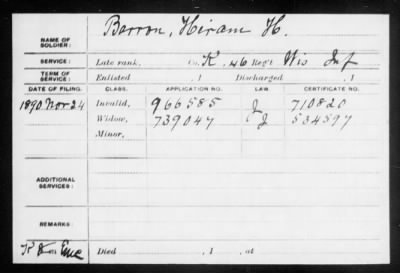 NAME OF SOLDIER: Barron, Hiram H.
SERVICE: Late rank, Co. K, 46 Reg't Wis Inf
TERM OF SERVICE: Enlisted , 1 Discharged , 1
DATE OF FILING. CLASS. APPLICATION NO. LAW. CERTIFICATE NO.
1890 Nov 24 Invalid, 966585 J 710820
Widow, 739047 J 534597
Minor,
ADDITIONAL SERVICES:
REMARKS:
Died , 1 , at